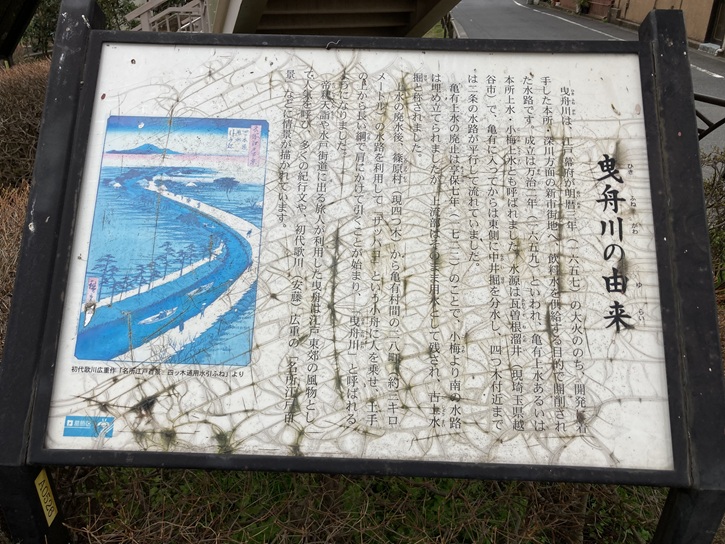 曳舟川の由来
ひき ふね がわ ゆ らい
曳舟川は、江戸幕府が明暦三年(一六五七)の大火ののち、開発に着
手した本所・深川方面の新市街地へ、飲料水を供給する目的で開削され
た水路です。成立は万治二年(一六五九)といわれ、亀有上水あるいは
本所上水・小梅上水とも呼ばれました。水源は瓦曽根溜井(現埼玉県越
谷市)で、亀有に入ってからは東側に中井掘を分水し、四つ木付近まで
は二条の水路が平行して流れていました。
亀有上水の廃止は享保七年(一七二二)のことで、小梅より南の水路
は埋め立てられましたが、上流部はそのまま用水として残され、古上水
掘と称されました。
上水の廃水後、篠原村(現四つ木)から亀有村間の二八町(約三キロ
メートル)の水路を利用して「サッパコ」という小舟に人を乗せ、土手
の上から長い綱で肩にかけて引くことが始まり、「曳舟川」と呼ばれる
ようになりました。
帝釈天詣や水戸街道に出る旅人が利用した曳舟は江戸東郊の風物とし
て人々を呼び、多くの紀行文や、初代歌川(安藤)広重の「名所江戸百
景」などに情景が描かれています。
初代歌川広重作「名所江戸百景・四ッ木通用水引ふね」より
葛飾区